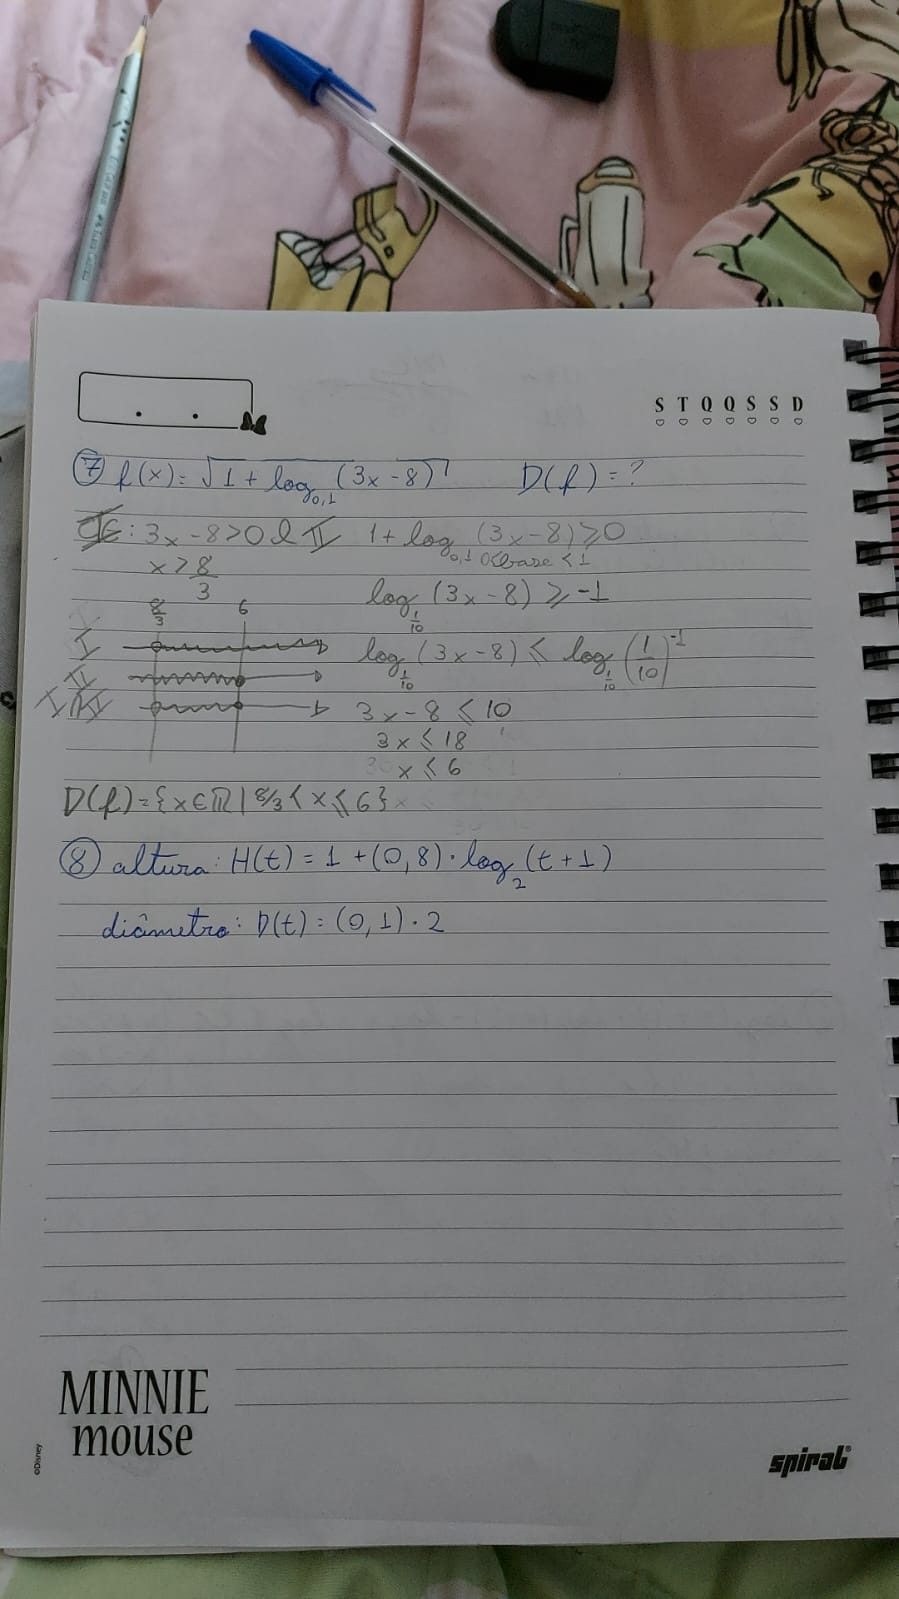 S T Q Q S S D
⑦ f(x) = √1 + log₀,₁ (3x - 8) D(f) = ?
CE: 3x - 8 > 0 e II 1 + log₀,₁ (3x - 8) ⩾ 0
0 < base < 1
x > 8/3
log 1/10 (3x - 8) ⩾ -1
8/3 6
I log 1/10 (3x - 8) ⩽ log 1/10 (1/10)⁻¹
II
I∩II 3x - 8 ⩽ 10
3x ⩽ 18
x ⩽ 6
D(f) = {x ∈ ℝ | 8/3 < x ⩽ 6}
⑧ altura: H(t) = 1 + (0,8) · log₂ (t + 1)
diâmetro: D(t) = (0,1) · 2
MINNIE
mouse
©Disney
spiral®